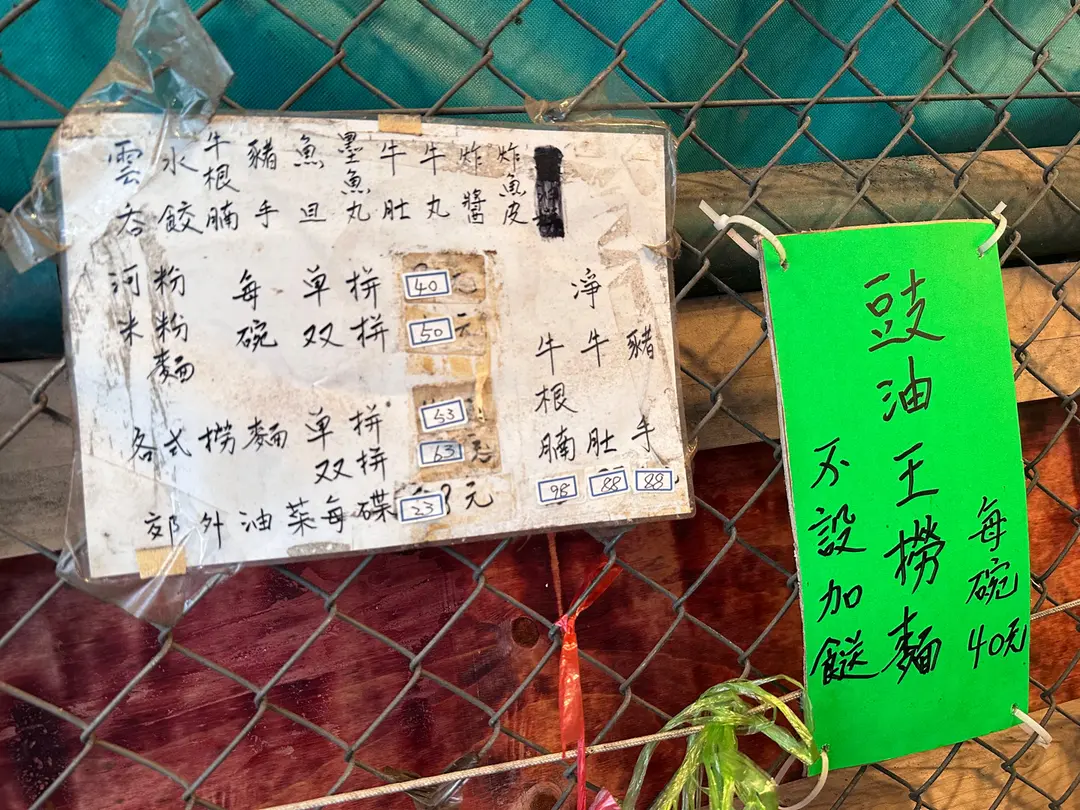 雲吞
水餃
牛根腩
豬手
魚旦
墨魚丸
牛肚
牛丸
炸醬
炸魚皮
河粉
米粉
麵
每碗
单拼 40元
双拼 50元
各式撈麵 单拼 53
双拼 63元
郊外油菜每碟 23元
淨
牛根腩 98
牛肚 88
豬手 88
豉油王撈麵
每碗40元
不設加餸